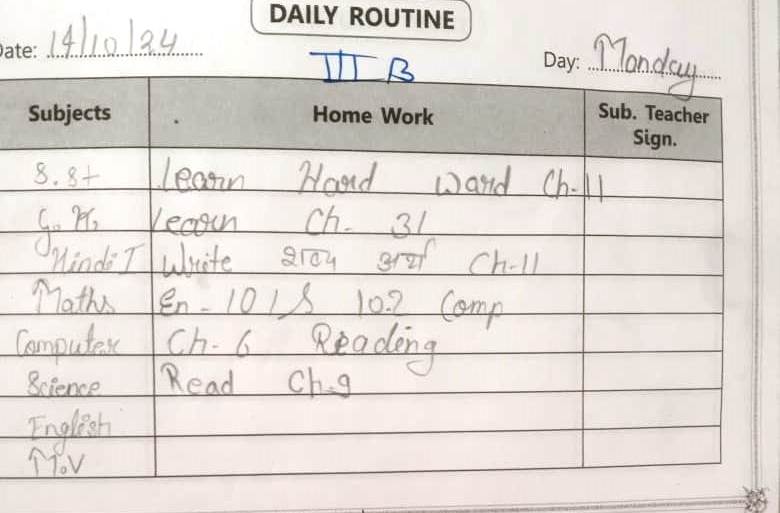 DAILY ROUTINE
Date: 14/10/24
III B
Day: Monday
Subjects Home Work Sub. Teacher Sign.
S.St Learn Hard Ward Ch-11
G.K. Learn Ch- 31
Hindi I Write शब्द अर्थ Ch-11
Maths Ex - 10.1 10.2 Comp
Computer Ch- 6 Reading
Science Read Ch.9
English
M.V